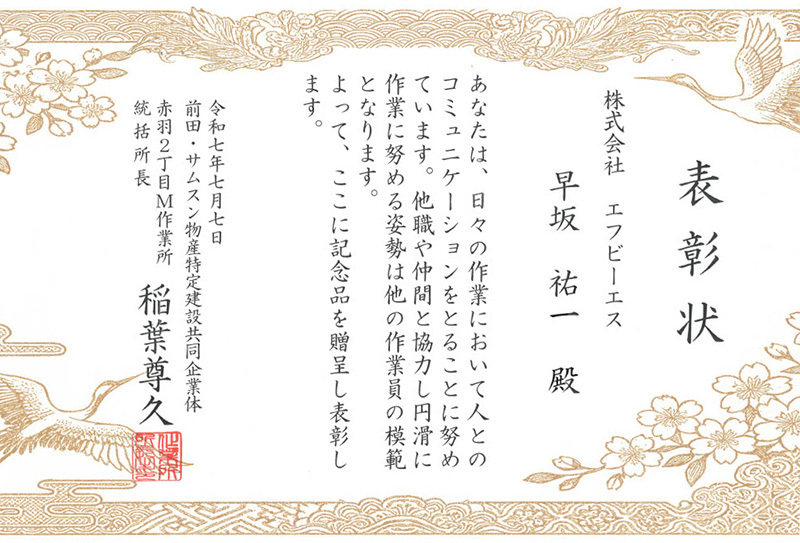 表彰状
株式会社 エフビーエス
早坂 祐一 殿
あなたは、日々の作業において人との
コミュニケーションをとることに努め
ています。他職や仲間と協力し円滑に
作業に努める姿勢は他の作業員の模範
となります。
よって、ここに記念品を贈呈し表彰し
ます。
令和七年七月七日
前田・サムスン物産特定建設共同企業体
赤羽2丁目M作業所
統括所長 稲葉尊久